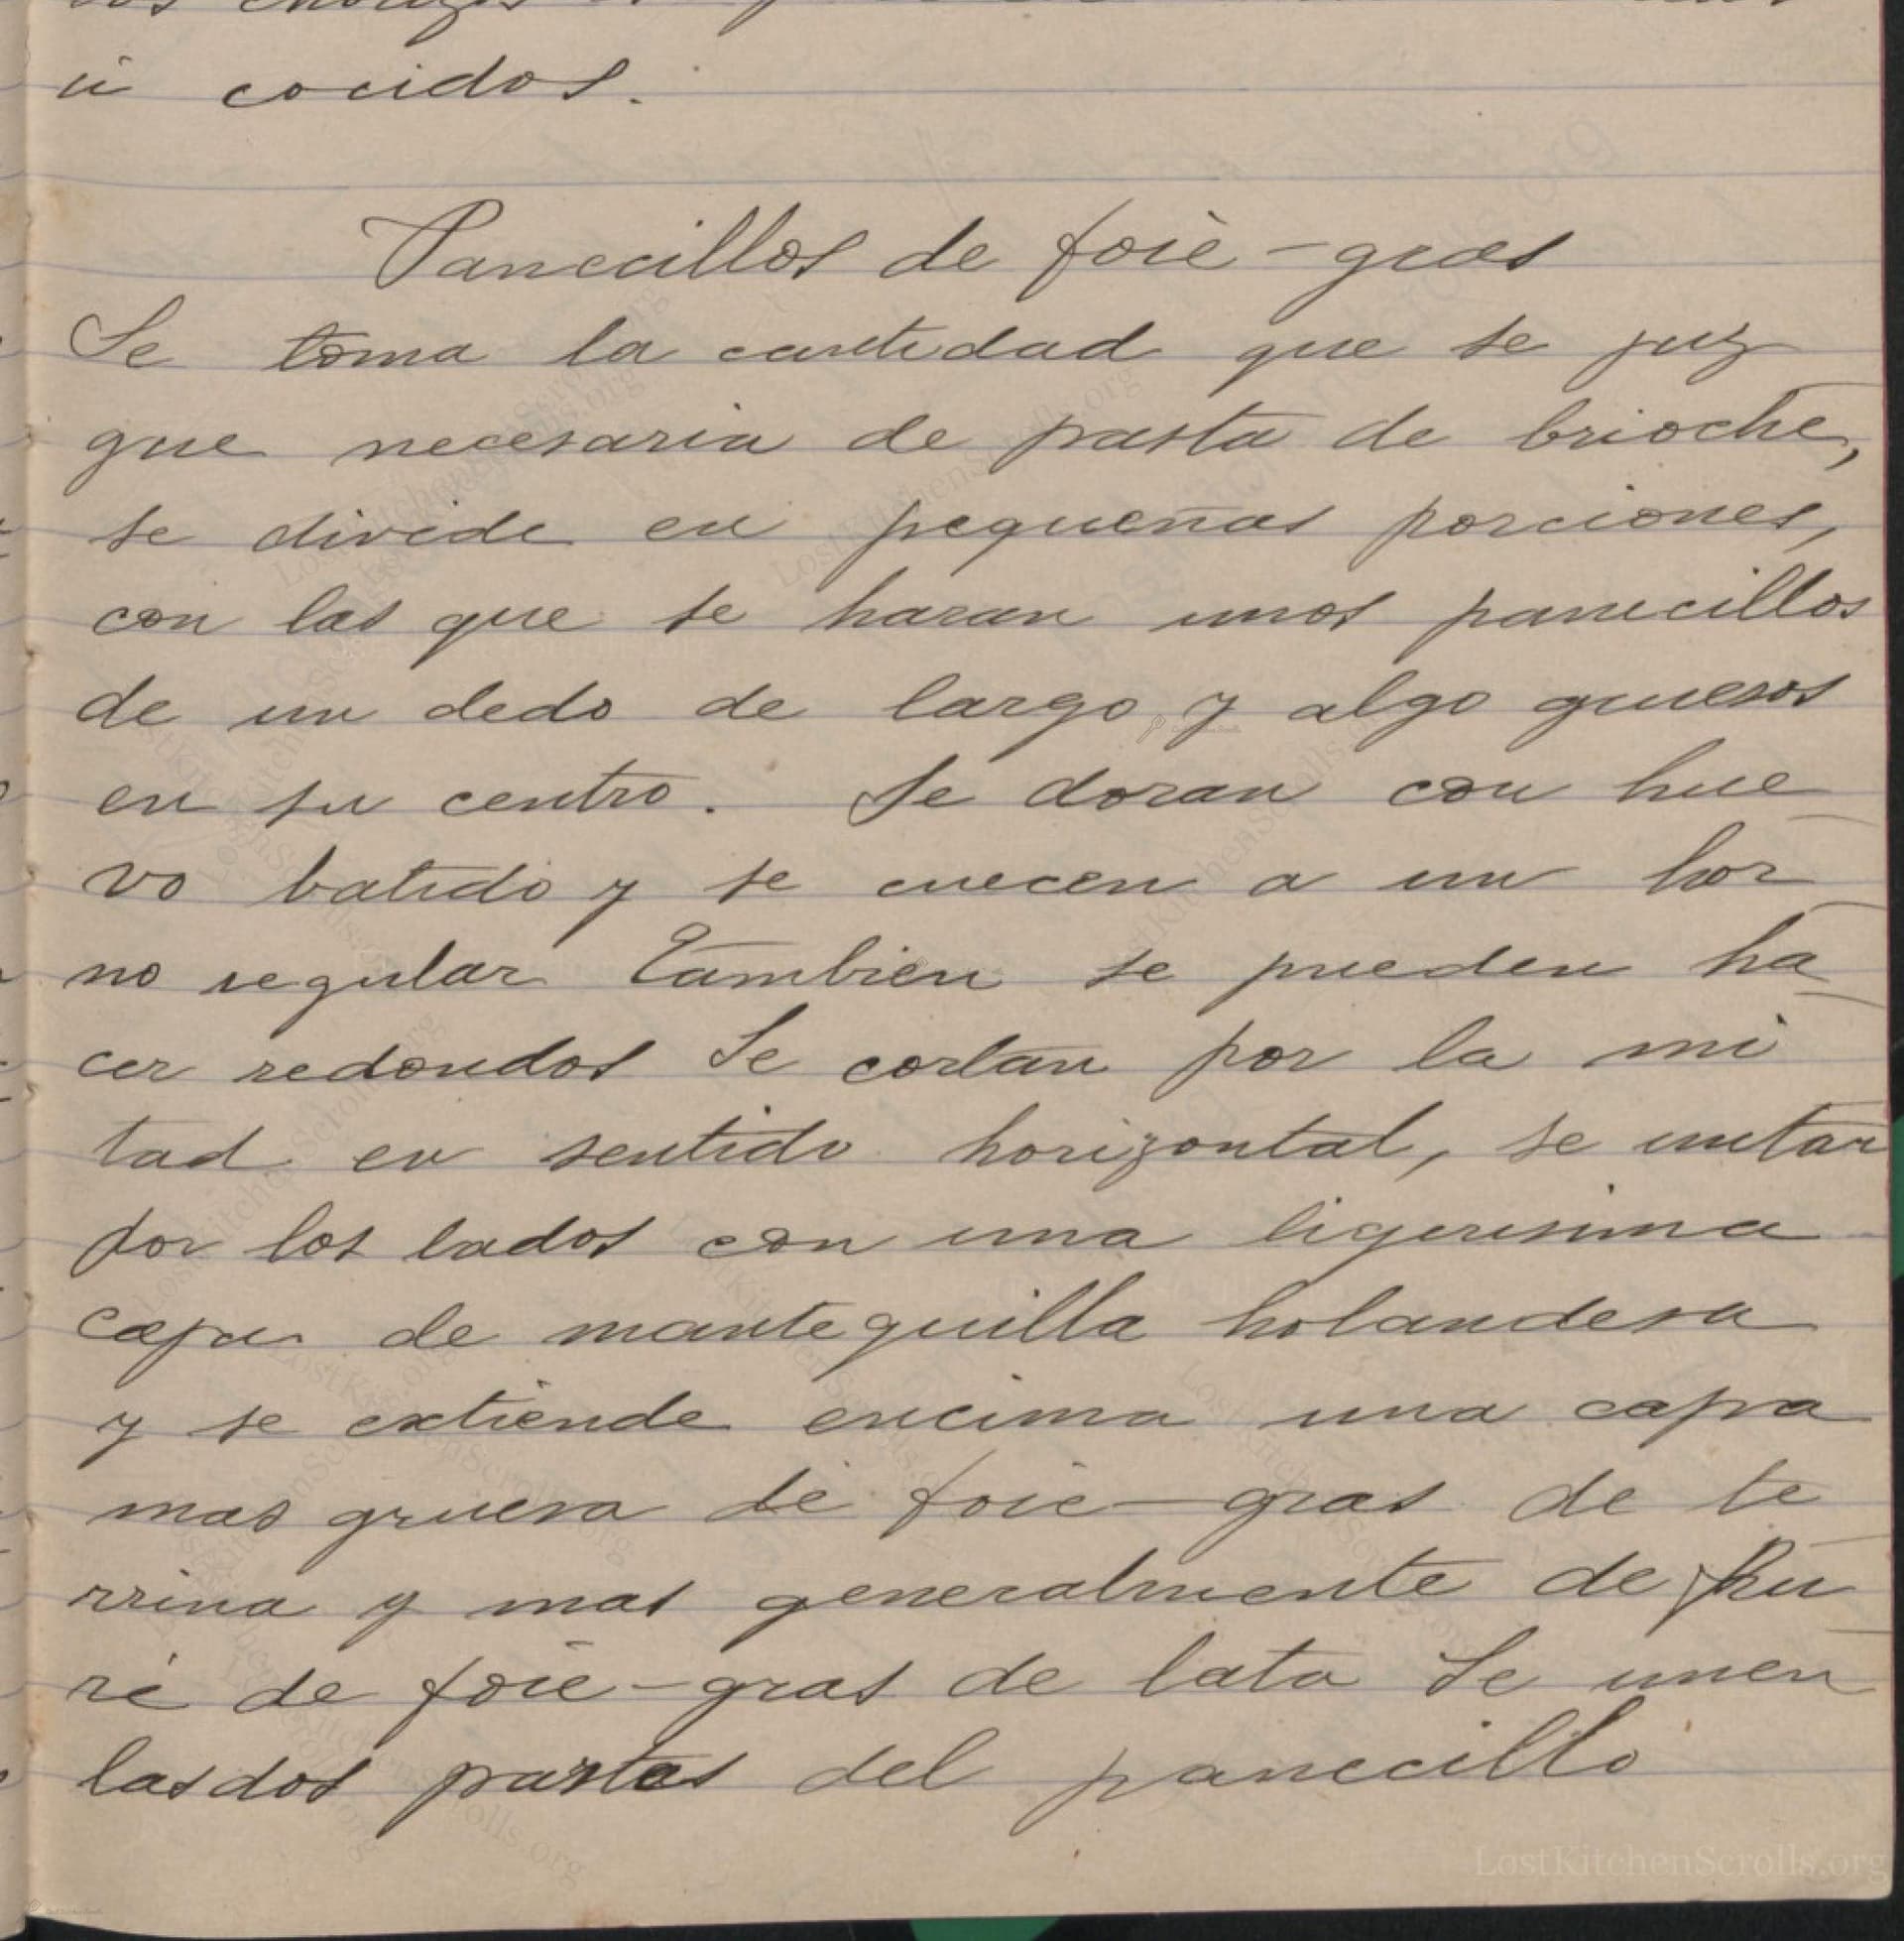 ú cocidos.
Panecillos de foie-gras
Se toma la cantidad que se juz
gue necesaria de pasta de brioche,
se divide en pequeñas porciones,
con las que se haran unos panecillos
de un dedo de largo y algo gruesos
en su centro. Se doran con hue
vo batido y se cuecen a un hor
no regular Tambien se pueden ha
cer redondos Se cortan por la mi
tad en sentido horizontal, se untan
por los lados con una ligerisima
capa de mantequilla holandesa
y se extiende encima una capa
mas gruesa de foie-gras de te
rrina y mas generalmente de pu
ré de foie-gras de lata Se unen
las dos partes del panecillo
LostKitchenScrolls.org